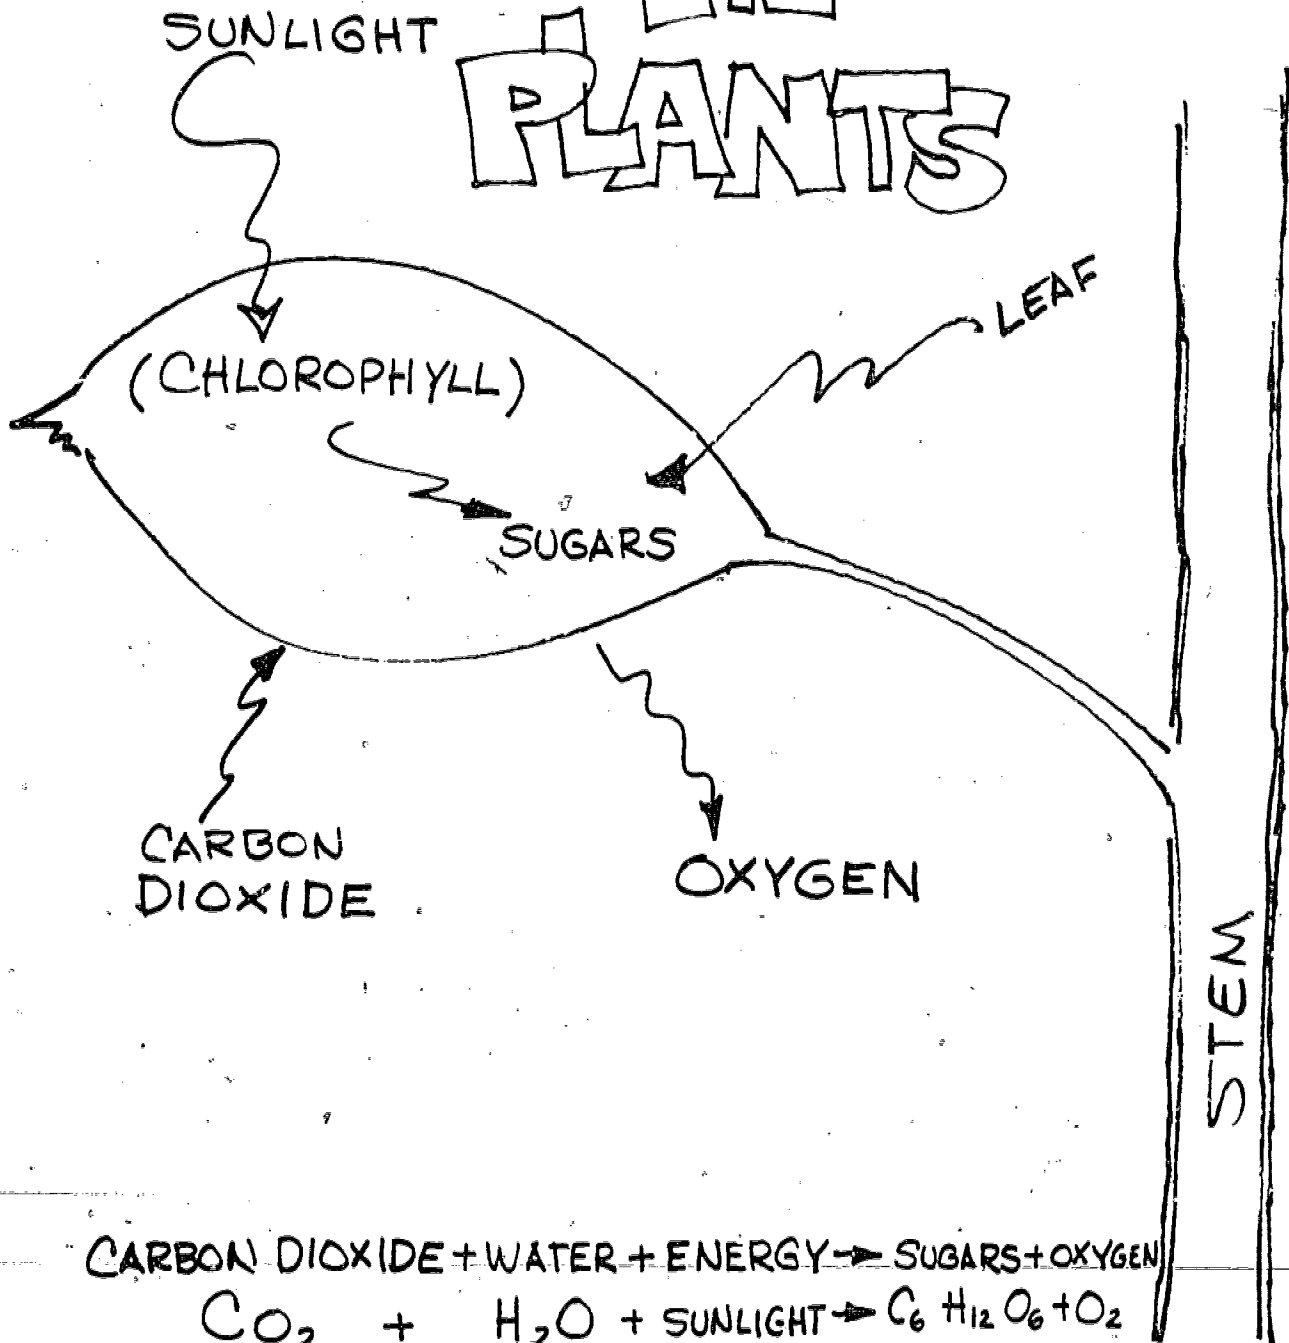 SUNLIGHT
PLANTS
LEAF
(CHLOROPHYLL)
SUGARS
CARBON
DIOXIDE
OXYGEN
STEM
CARBON DIOXIDE + WATER + ENERGY → SUGARS + OXYGEN
CO₂ + H₂O + SUNLIGHT → C₆ H₁₂ O₆ + O₂